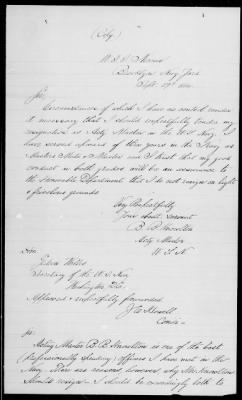 (Copy)
U.S.S.
Brooklyn Navy Yard
Sept. 17th
Sir,
Circumstances of which I have no control render
it necessary that I should respectfully tender my
resignation as Actg Master in the U.S. Navy. I
have served upwards of three years in the Navy as
Masters Mate & Master and I trust that my good
conduct in both grades will be an assurance to
the Honorable Department that I do not resign on light
& frivolous grounds
Very Respectfully
Your obedt. Servant
B. B. Knowlton
Actg Master
U.S.N.
Hon.
Gideon Welles
Secretary of the U.S. Navy
Washington D.C.
Approved & respectfully forwarded
Howell
Comdr
Acting Master B. B. Knowlton is one of the best
(Professionally speaking) officers I have met in the
Navy. There are reasons, however why Mr. Knowlton
should resign. I should be exceedingly loth to